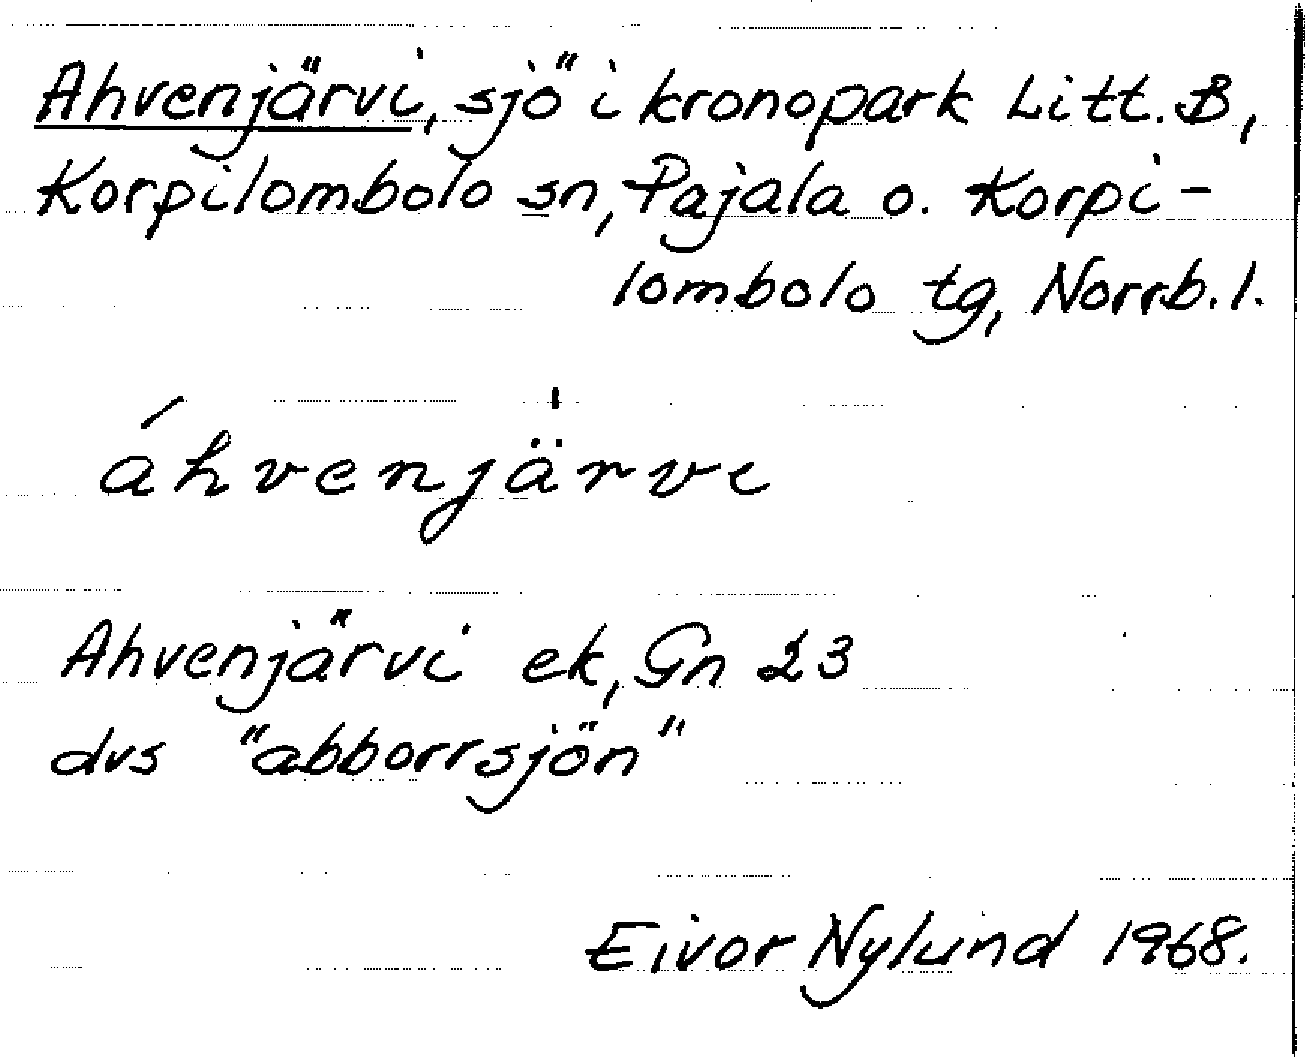 Ahvenjärvi, sjö i kronopark Litt. B,
Korpilombolo sn, Pajala o. Korpi-
lombolo tg, Norrb. l.
áhvenjärvi
Ahvenjärvi ek, Gn 23
dvs "abborrsjön"
Eivor Nylund 1968.